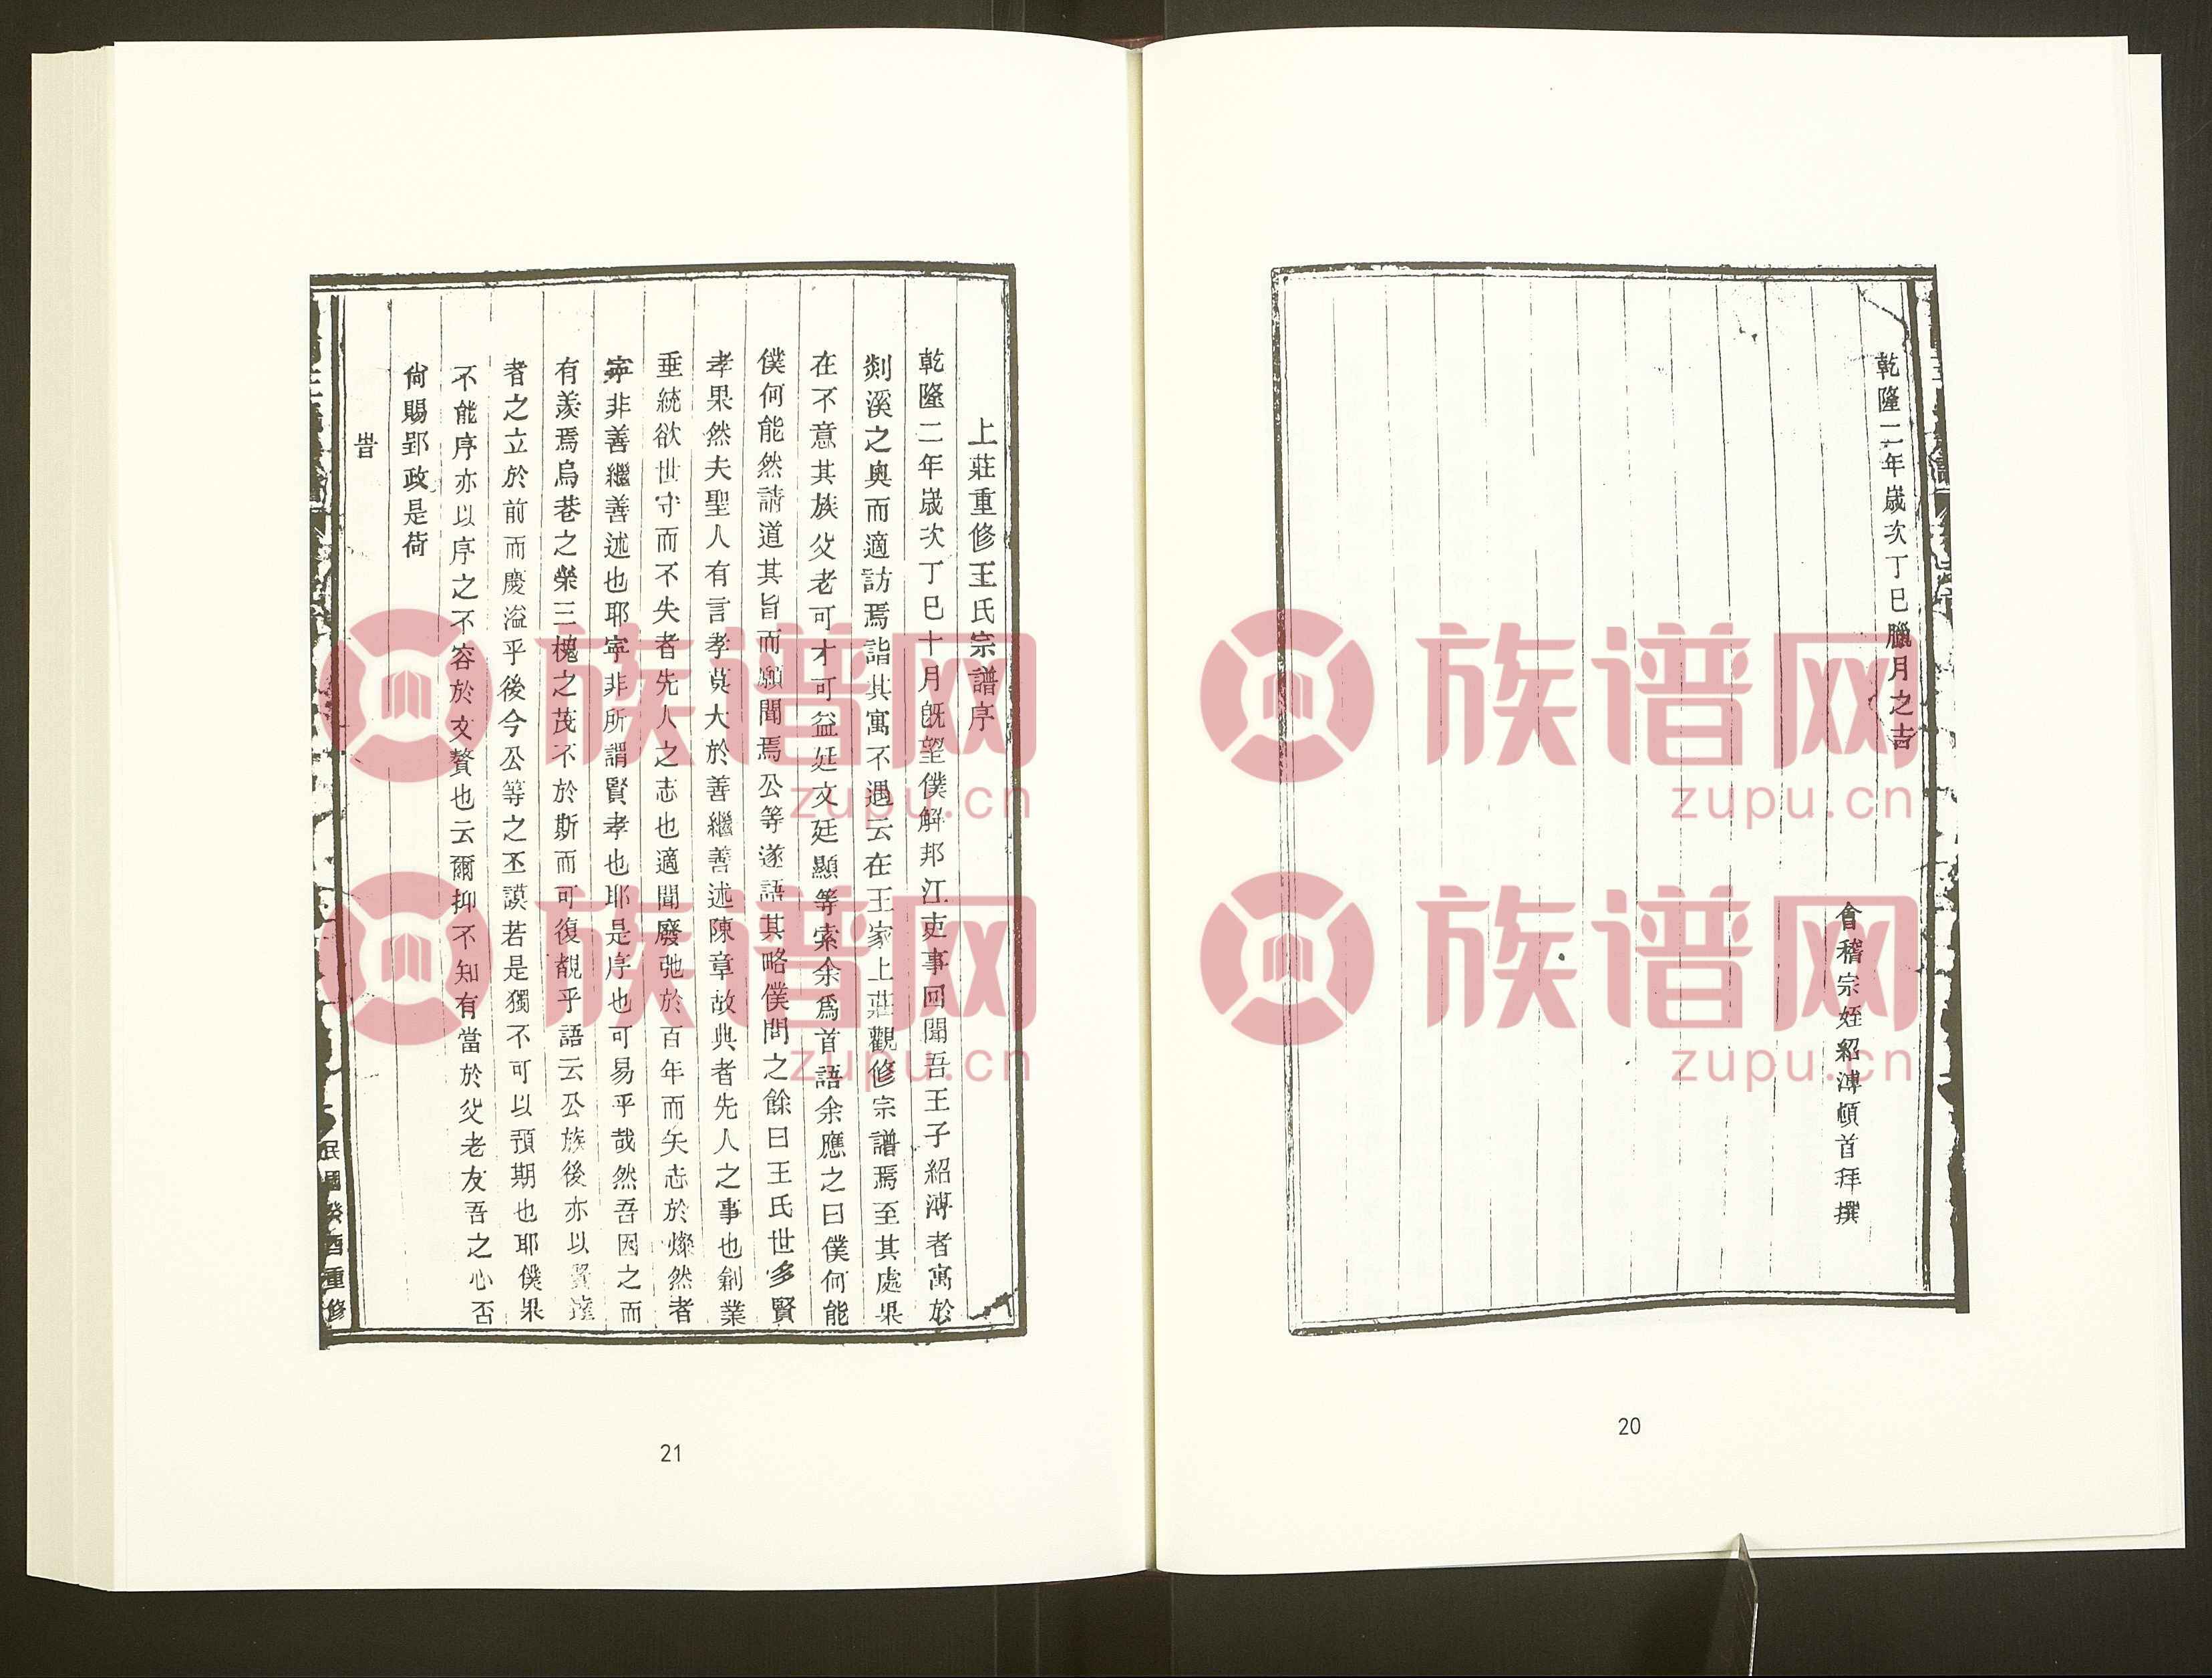 乾隆二年嵗次丁巳臘月之吉
會稽宗姪紹溥頓首拜撰
20
上莊重修王氏宗譜序
乾隆二年嵗次丁巳十月旣望僕解邦江吏事回聞吾王子紹溥者寓於
剡溪之奥而適訪焉詣其寓不遇云在王家上莊觀修宗譜焉至其處果
在不意其族父老可才可益廷文廷顯等索余爲首語余應之曰僕何能
僕何能然請道其旨而願聞焉公等遂語其略僕問之餘曰王氏世多賢
孝果然夫聖人有言孝莫大於善繼善述陳章故典者先人之事也創業
垂統欲世守而不失者先人之志也適聞廢弛於百年而矢志於燦然者
寜非善繼善述也耶寜非所謂賢孝也耶是序也可易乎哉然吾因之而
有羨焉烏巷之榮三槐之茂不於斯而可復覩乎語云公族後亦以
者之立於前而慶溢乎後今公等之丕謨若是獨不可以預期也耶僕果
不能序亦以序之不容於文贅也云爾抑不知有當於父老友吾之心否
尙賜郢政是荷
旹
民國癸酉重修
21
族谱网
zupu.cn
族谱网
zupu.cn
族谱网
zupu.cn
族谱网
zupu.cn